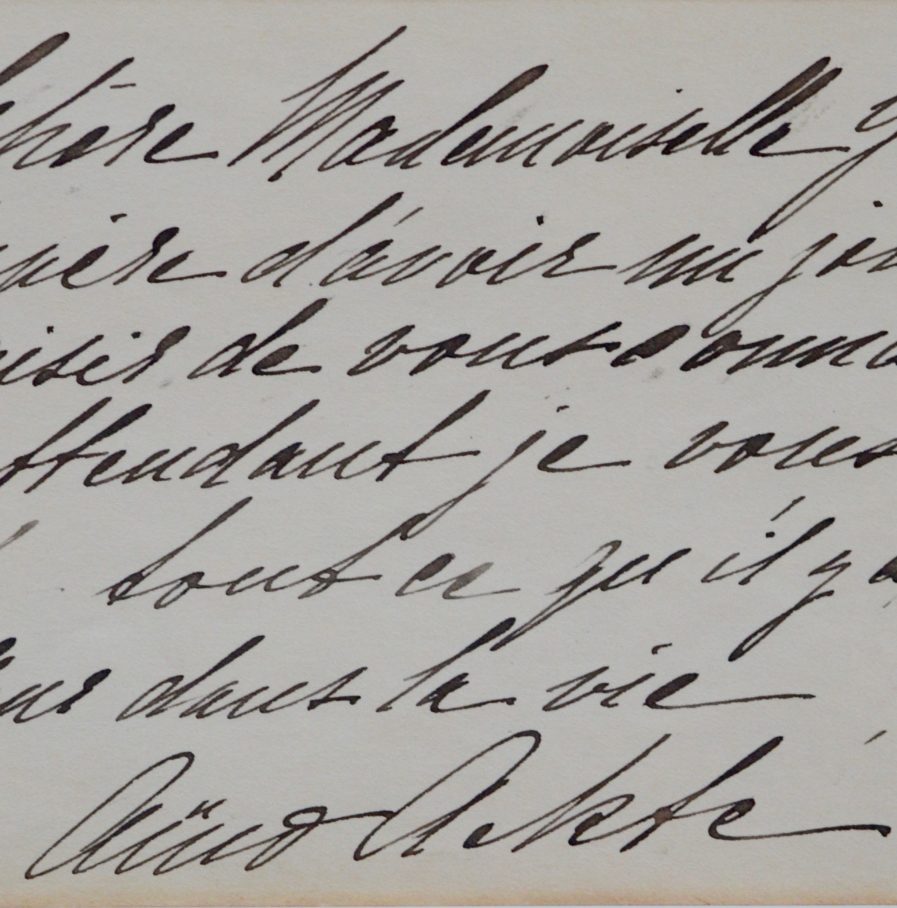 chère Mademoiselle j
père d'avoir un jou
aisir de vous conna
attendant je vous
tout ce qu'il y a
eur dans la vie
Aïno Ackté